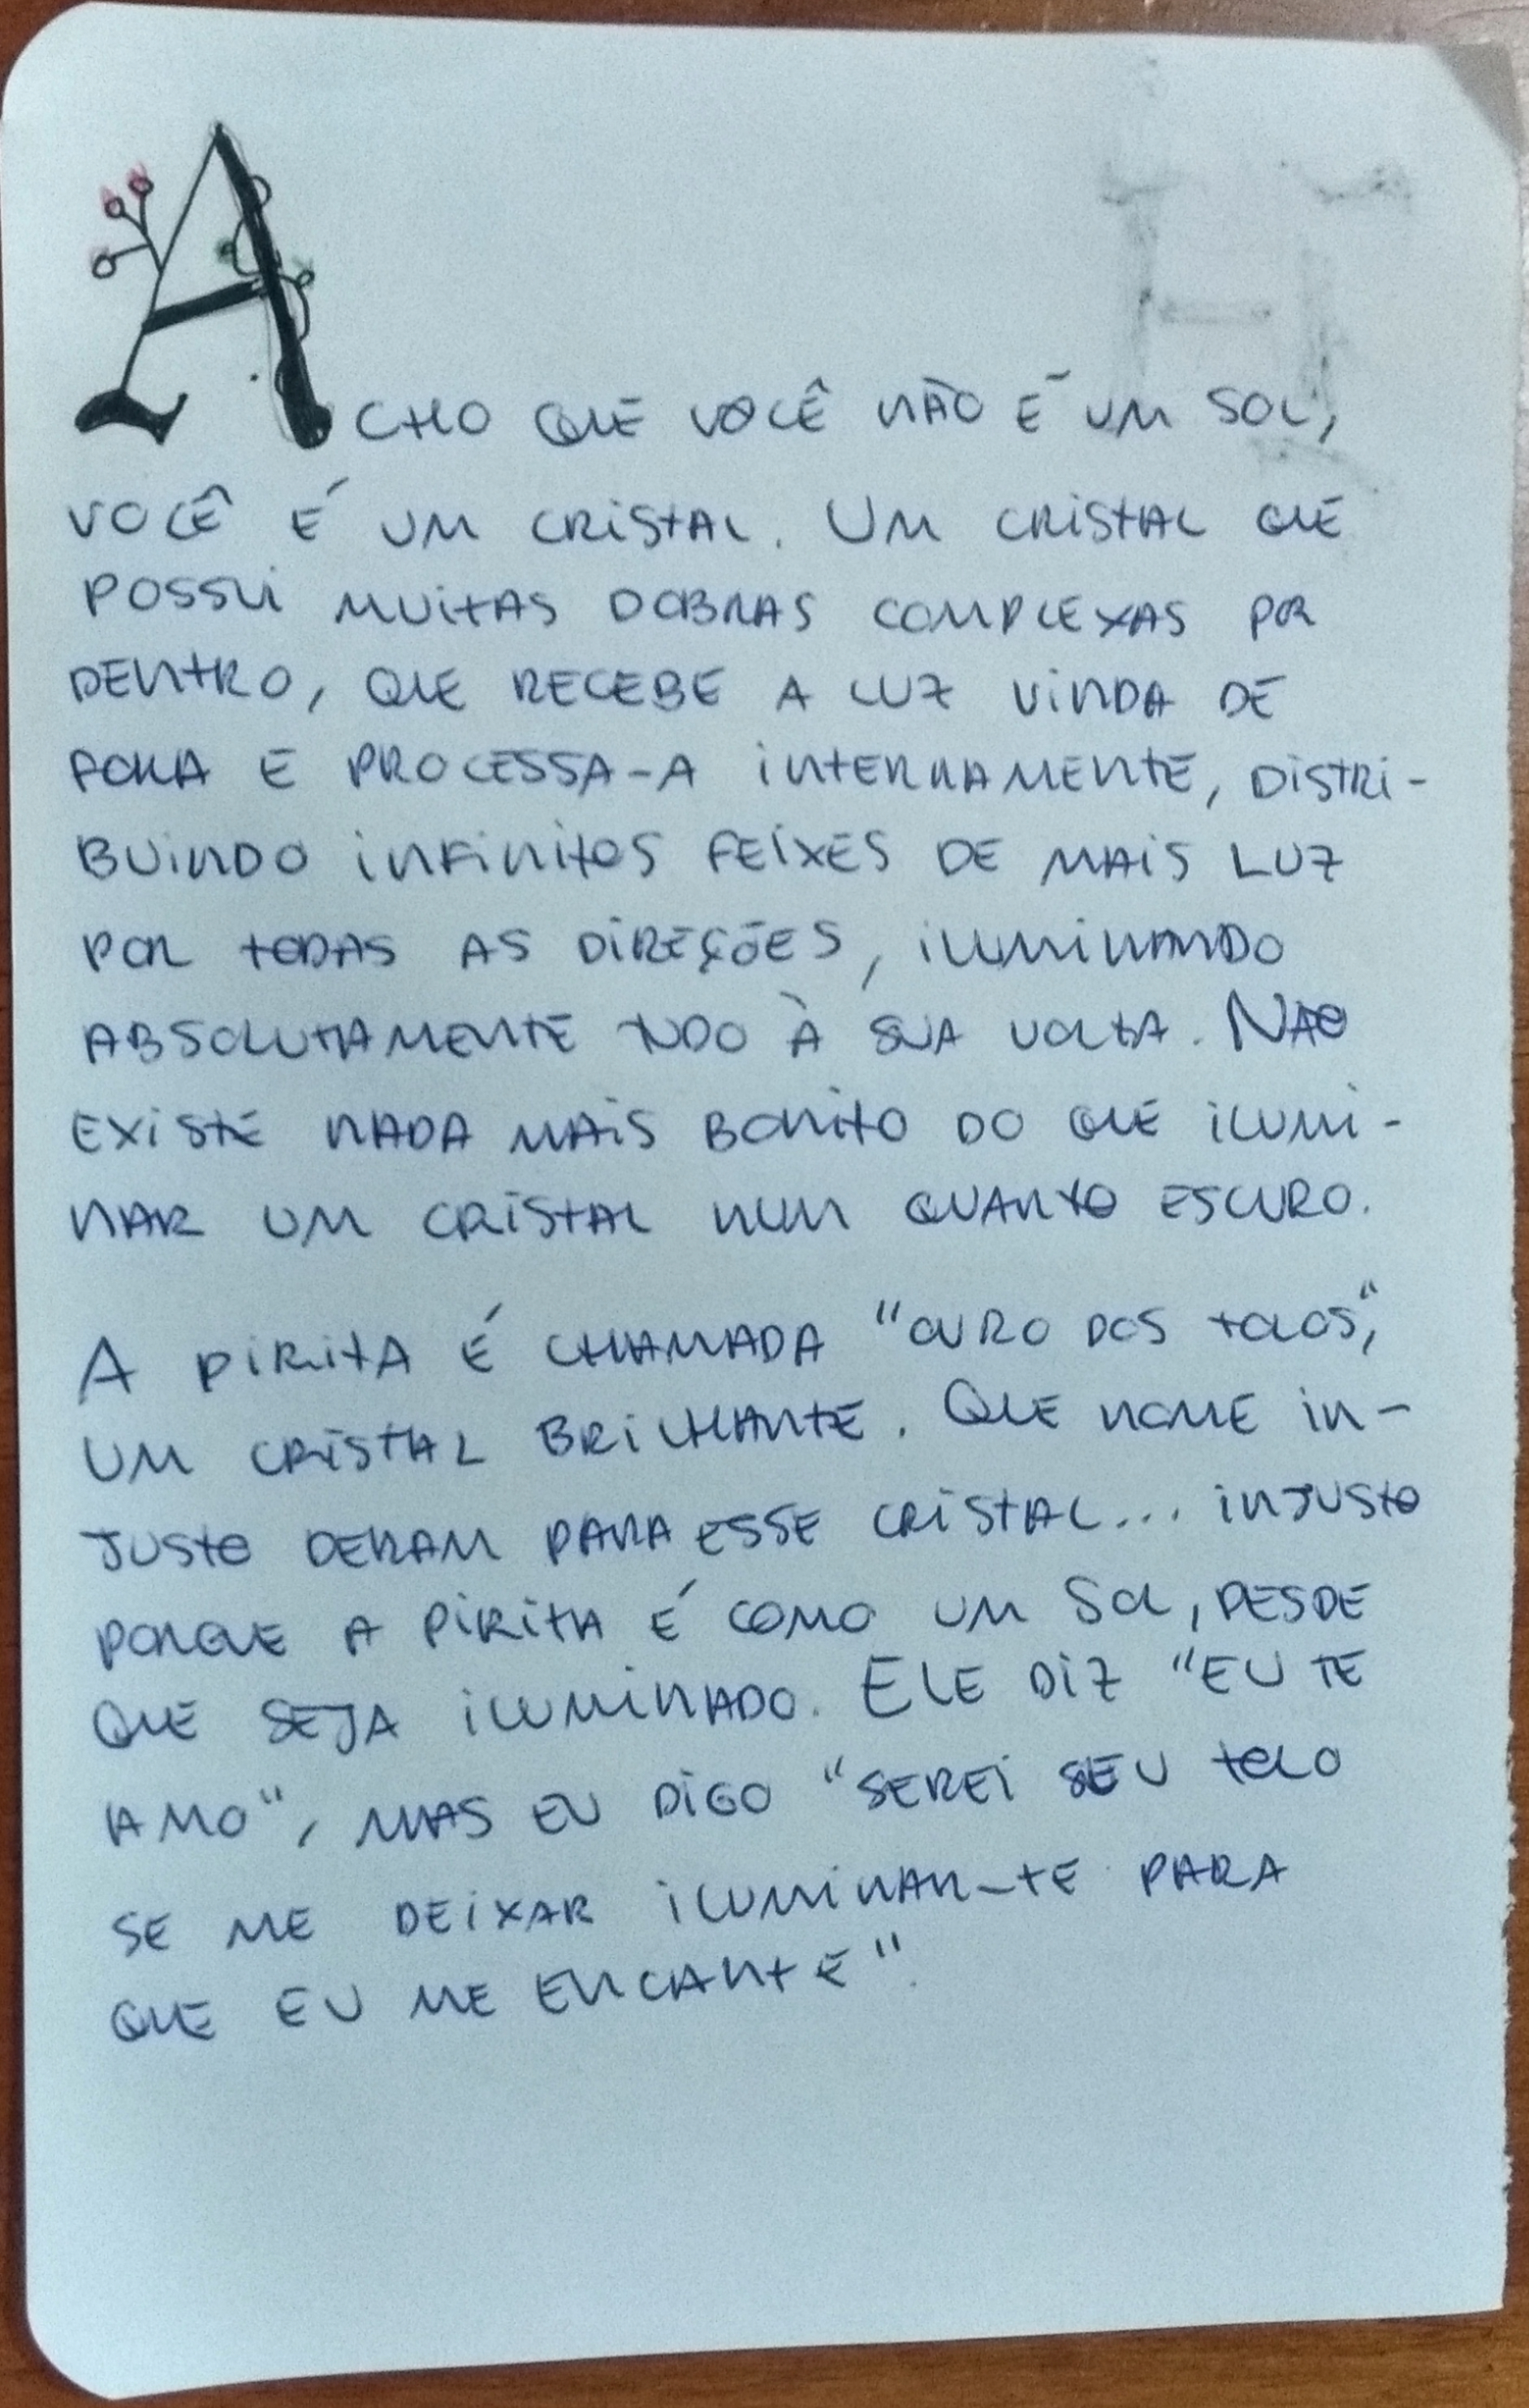 ACHO QUE VOCÊ NÃO É UM SOL,
VOCÊ É UM CRISTAL. UM CRISTAL QUE
POSSUI MUITAS DOBRAS COMPLEXAS POR
DENTRO, QUE RECEBE A LUZ VINDA DE
FORA E PROCESSA-A INTERNAMENTE, DISTRI-
BUINDO INFINITOS FEIXES DE MAIS LUZ
POR TODAS AS DIREÇÕES, ILUMINANDO
ABSOLUTAMENTE TUDO À SUA VOLTA. NAO
EXISTE NADA MAIS BONITO DO QUE ILUMI-
NAR UM CRISTAL NUM QUARTO ESCURO.
A PIRITA É CHAMADA "OURO DOS TOLOS",
UM CRISTAL BRILHANTE. QUE NOME IN-
JUSTO DERAM PARA ESSE CRISTAL... INJUSTO
PORQUE A PIRITA É COMO UM SOL, DESDE
QUE SEJA ILUMINADO. ELE DIZ "EU TE
AMO", MAS EU DIGO "SEREI SEU TOLO
SE ME DEIXAR ILUMINAR-TE PARA
QUE EU ME ENCANTE".